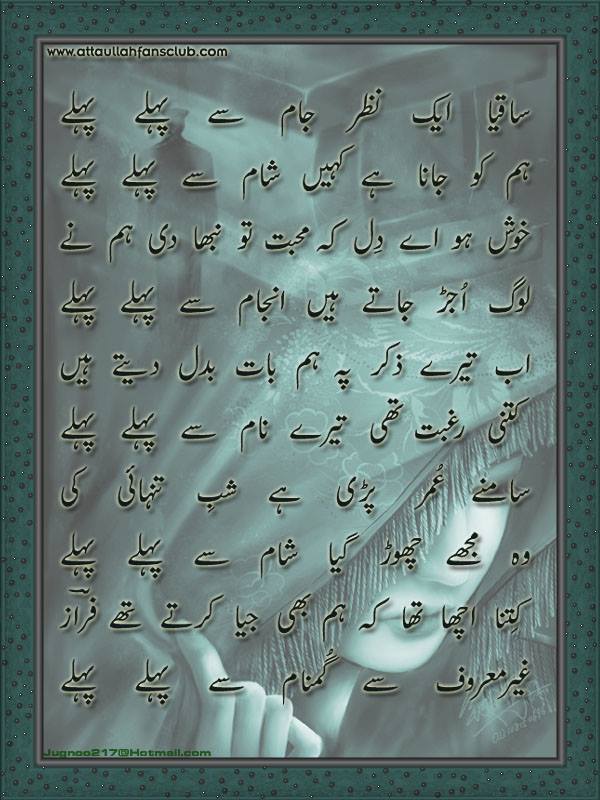 www.attaullahfansclub.com
ساقیا ایک نظر جام سے پہلے پہلے
ہم کو جانا ہے کہیں شام سے پہلے پہلے
خوش ہو اے دِل کہ محبت تو نبھا دی ہم نے
لوگ اُجڑ جاتے ہیں انجام سے پہلے پہلے
اب تیرے ذکر پہ ہم بات بدل دیتے ہیں
کتنی رغبت تھی تیرے نام سے پہلے پہلے
سامنے عُمر پڑی ہے شبِ تنہائی کی
وہ مجھے چھوڑ گیا شام سے پہلے پہلے
کِتنا اچھا تھا کہ ہم بھی جیا کرتے تھے فرازؔ
غیرمعروف سے گُمنام سے پہلے پہلے
Jugnoo217@Hotmail.com